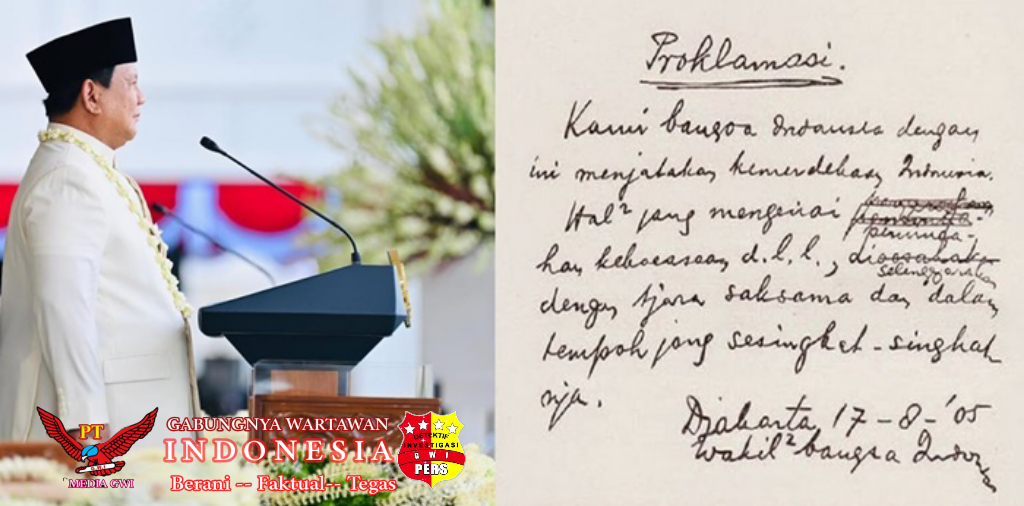 PT
GWI
MEDIA GWI
GABUNGNYA WARTAWAN
INDONESIA
Berani -- Faktual-- Tegas
DETEKTIF
INVESTIGASI
GWI
PERS
Proklamasi.
Kami bangsa Indonesia dengan
ini menjatakan kemerdekaan Indonesia.
Hal² jang mengenai
peminda-
han kekoeasaan d.l.l.,
diselenggarakan
dengan tjara saksama dan dalam
tempoh jang sesingkat-singkat
nja.
Djakarta, 17-8-'05
Wakil² bangsa Indon